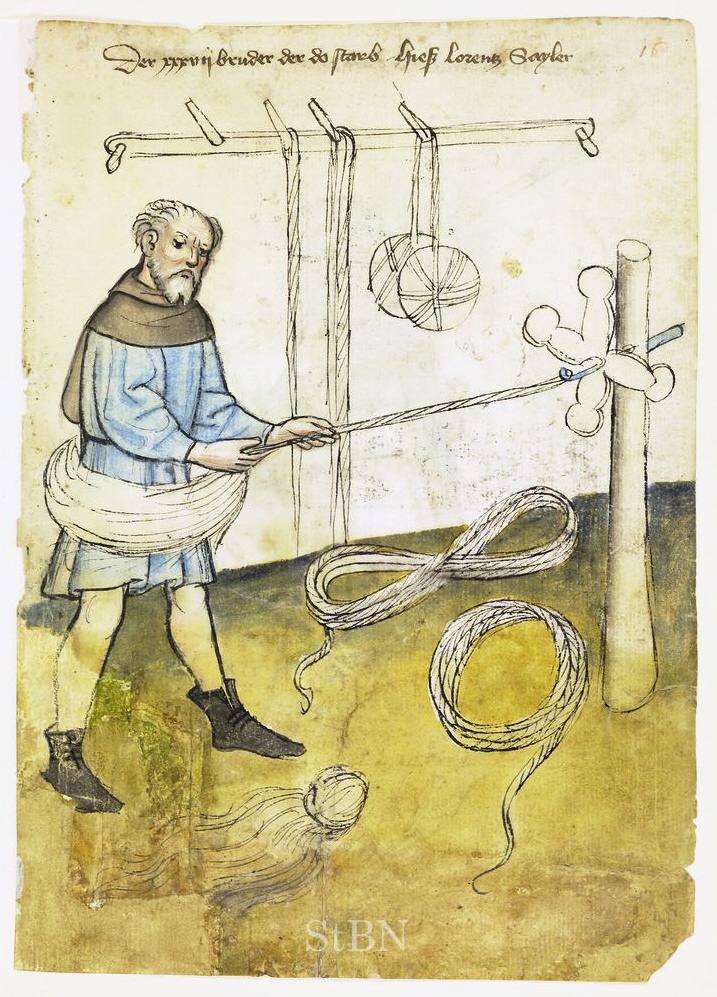 Der xxxvij bruder der do starb hieß lorentz Sayler
16
StBN